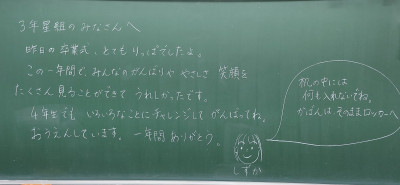 3年星組のみなさんへ
昨日の卒業式、とてもりっぱでしたよ。
この一年間で、みんなのがんばりややさしさ 笑顔を
たくさん見ることができて うれしかったです。
4年生でも いろいろなことにチャレンジして がんばってね。
おうえんしています。一年間 ありがとう。
しずか
机の中には
何も入れないでね。
かばんは そのままロッカーへ